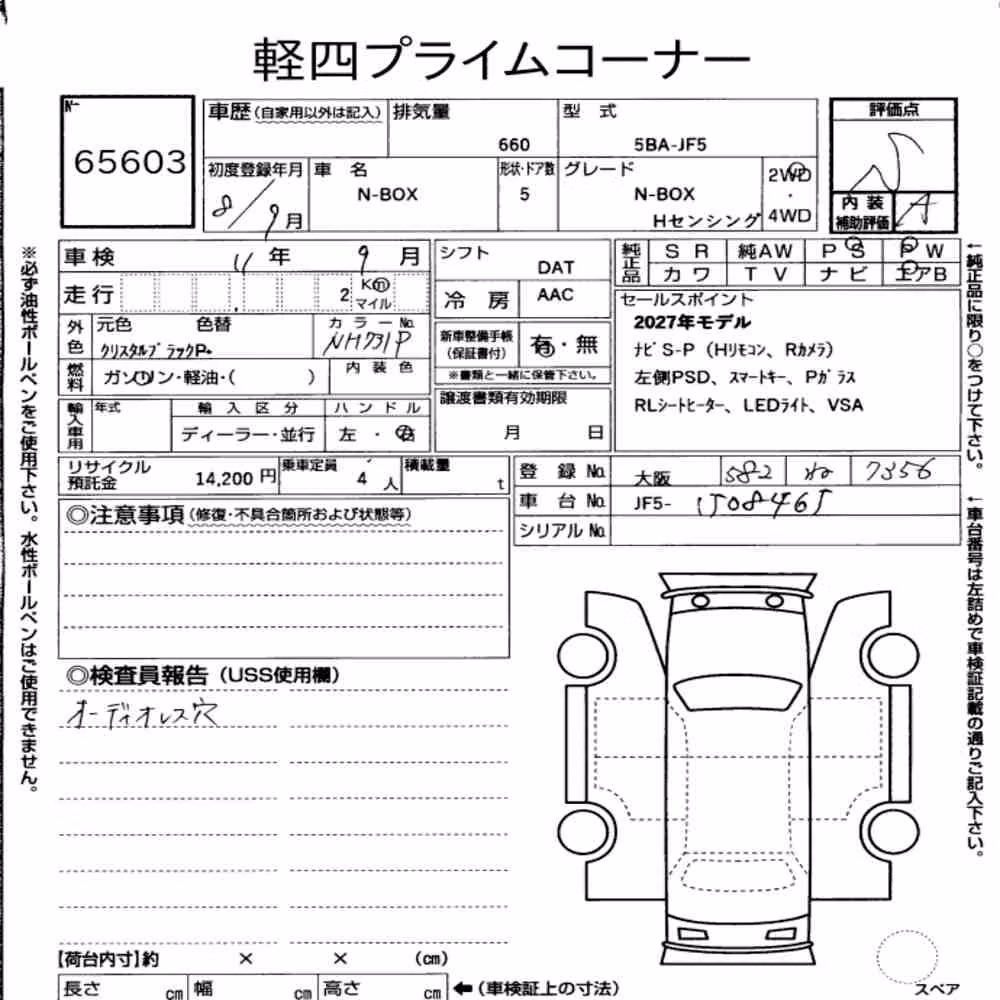 軽四プライムコーナー
No
65603
車歴(自家用以外は記入)
排気量 660
型式 5BA-JF5
評価点 S
初度登録年月 8/9月
車名 N-BOX
形状・ドア数 5
グレード N-BOX
Hセンシング
2WD・4WD
内装補助評価 A
車検 11年 9月
走行 2 Km マイル
外色 元色 色替
クリスタルブラックP.
カラーNo. NH731P
燃料 ガソリン・軽油・( )
内装色
輸入車用 年式 輸入区分 ハンドル
ディーラー・並行 左・右
リサイクル預託金 14,200円
乗車定員 4人
積載量 t
シフト DAT
冷房 AAC
新車整備手帳(保証書付) 有・無
※書類と一緒に保管下さい。
譲渡書類有効期限
月 日
純正品 SR 純AW PS PW
カワ TV ナビ エアB
セールスポイント
2027年モデル
ナビS-P(Hリモコン、Rカメラ)
左側PSD、スマートキー、Pガラス
RLシートヒーター、LEDライト、VSA
登録No. 大阪 582 ね 7356
車台No. JF5-
シリアルNo.
◎注意事項(修復・不具合箇所および状態等)
◎検査員報告(USS使用欄)
オーディオレス穴
【荷台内寸】約 × × (cm)
長さ cm 幅 cm 高さ cm ←(車検証上の寸法)
スペア
※必ず油性ボールペンをご使用下さい。水性ボールペンはご使用できません。
←純正品に限り○をつけて下さい。
←車台番号は左詰めで車検証記載の通りご記入下さい。